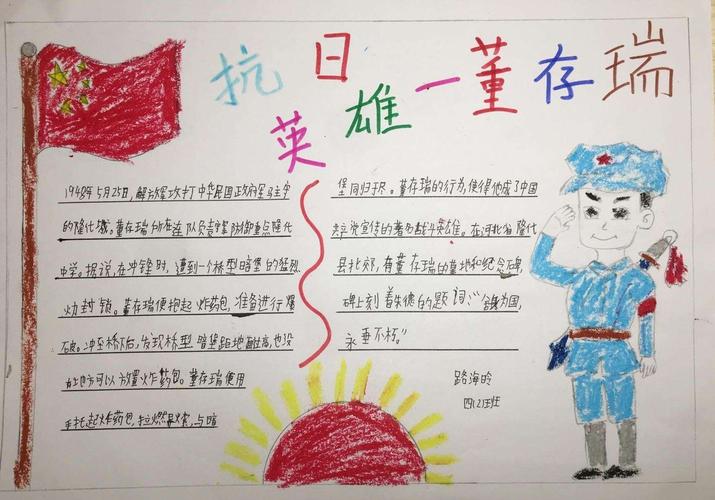 抗日
英雄一董存瑞
1948年5月25日,解放军攻打中华民国政府军驻守
的隆化城。董存瑞所在连队负责攻防御重点隆化
中学。据说,在冲锋时,遭到一个桥型暗堡的猛烈
火力封锁。董存瑞便抱起炸药包,准备进行爆
破。冲至桥下后,发现桥型暗堡距地面高,也没
有地方可以放置炸药包。董存瑞便用
手托起炸药包,拉燃导火索,与暗
堡同归于尽。董存瑞的行为,使得他成了中国
共产党宣传的著名战斗英雄。在河北省隆化
县北郊,有董存瑞的墓地和纪念碑,
碑上刻着朱德的题词:“舍身为国,
永垂不朽。”
路海
四(2)班